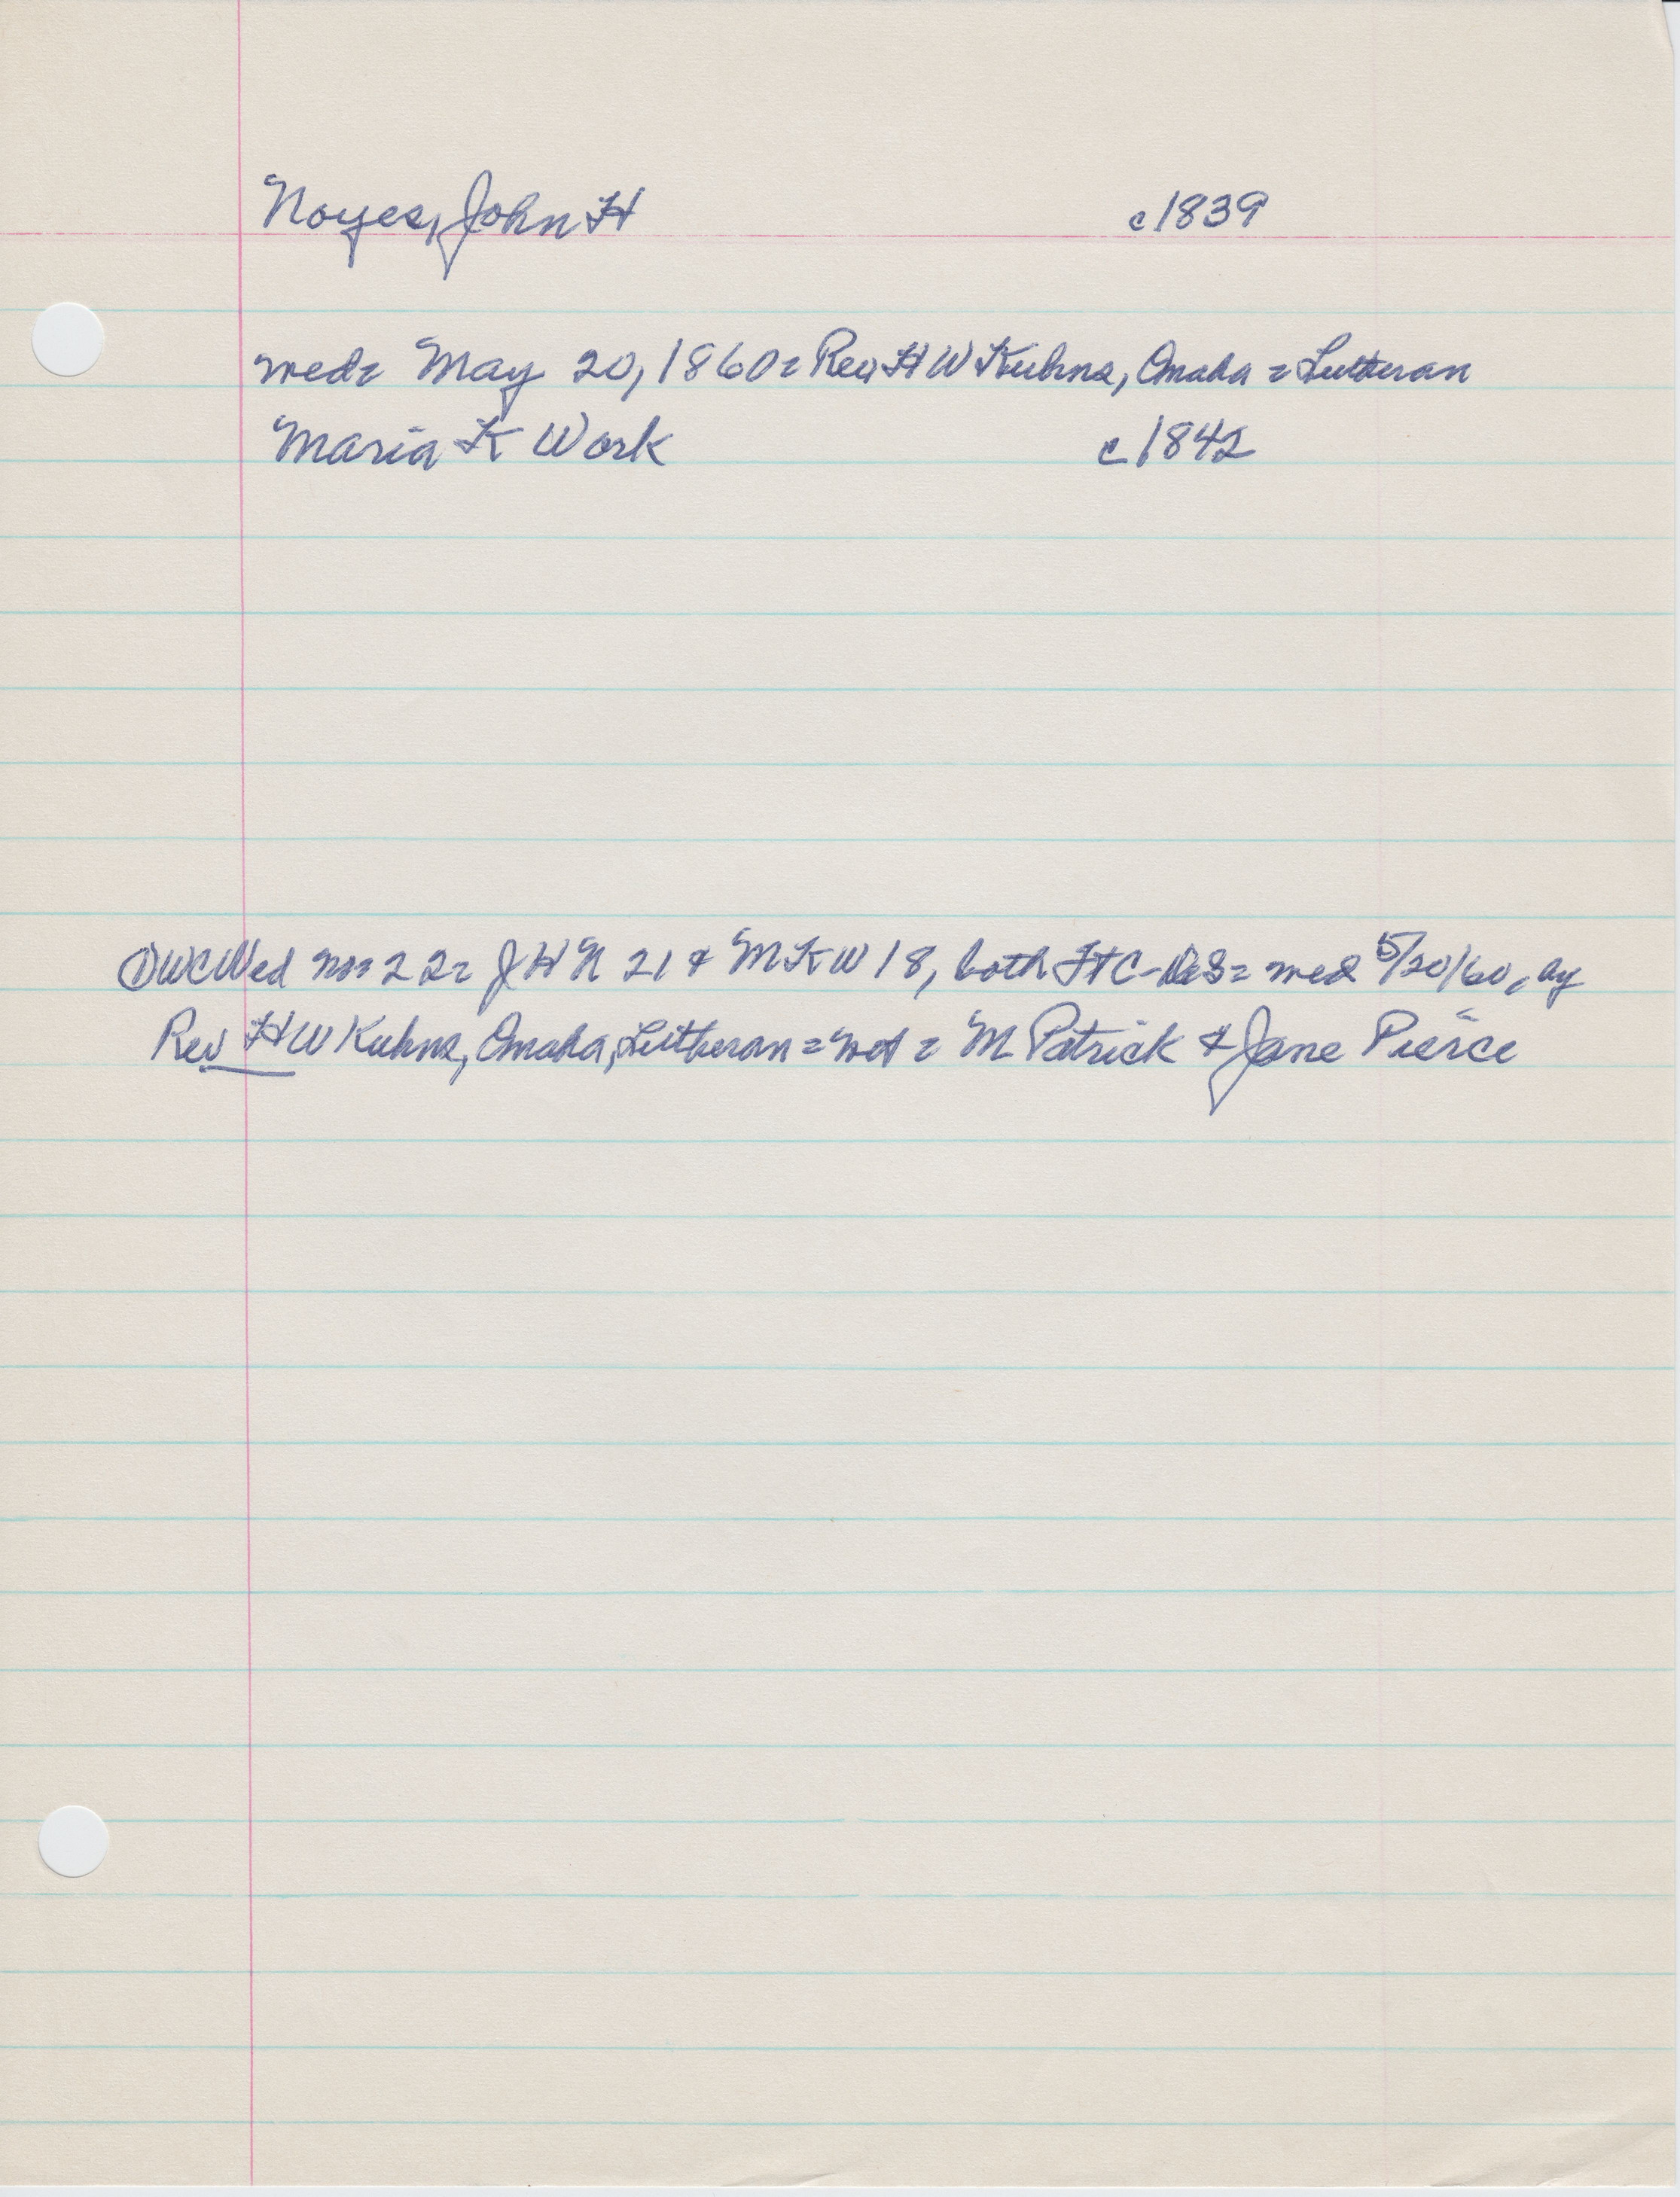 Noyes, John H c1839
wed= May 20, 1860= Rev H W Kuhns, Omaha = Lutheran
Maria K Work c1842
DWCWed no 22= J H N 21 & M K W 18, both FtC- = wed 5/20/60, by
Rev H W Kuhns, Omaha, Lutheran = wit = M Patrick & Jane Pierce